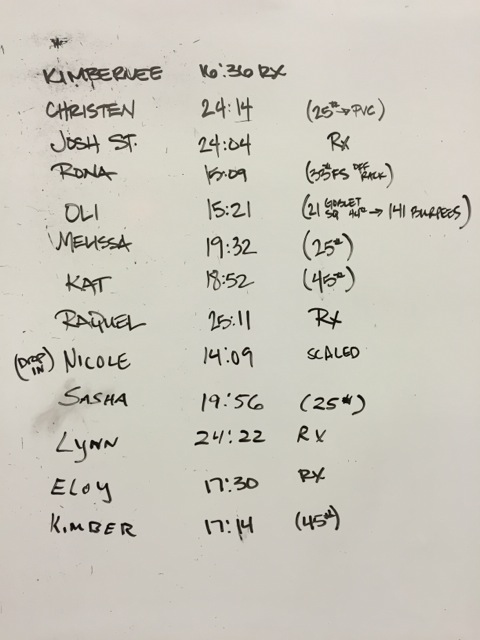 *
KIMBERLEE 16:36 RX
CHRISTEN 24:14 (25# → PVC)
JOSH ST. 24:04 RX
RONA 15:09 (33# FS OFF RACK)
OLI 15:21 (21 GOBLET SQ 44# → 141 BURPEES)
MELISSA 19:32 (25#)
KAT 18:52 (45#)
RAQUEL 25:11 RX
(DROP IN) NICOLE 14:09 SCALED
SASHA 19:56 (25#)
LYNN 24:22 RX
ELOY 17:30 RX
KIMBER 17:14 (45#)